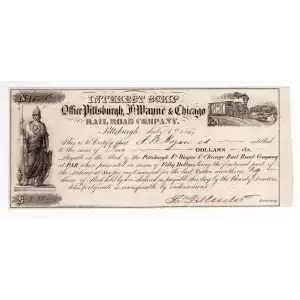 INTEREST SCRIP
Office Pittsburgh, Ft Wayne & Chicago
RAIL ROAD COMPANY.
Pittsburgh, July 6th 1857
This is to Certify that A. W. is entitled
to the sum of DOLLARS cts.
Payable in the Stock of the Pittsburgh Ft Wayne & Chicago Rail Road Company
at PAR when presented in sums of Fifty Dollars being the fractional part of
the Interest at Six per cent earned for the Last Twelve months on
share of Stock held by declared payable this day by the Board of Directors
This certificate is transferable by endorsement
Secretary
$